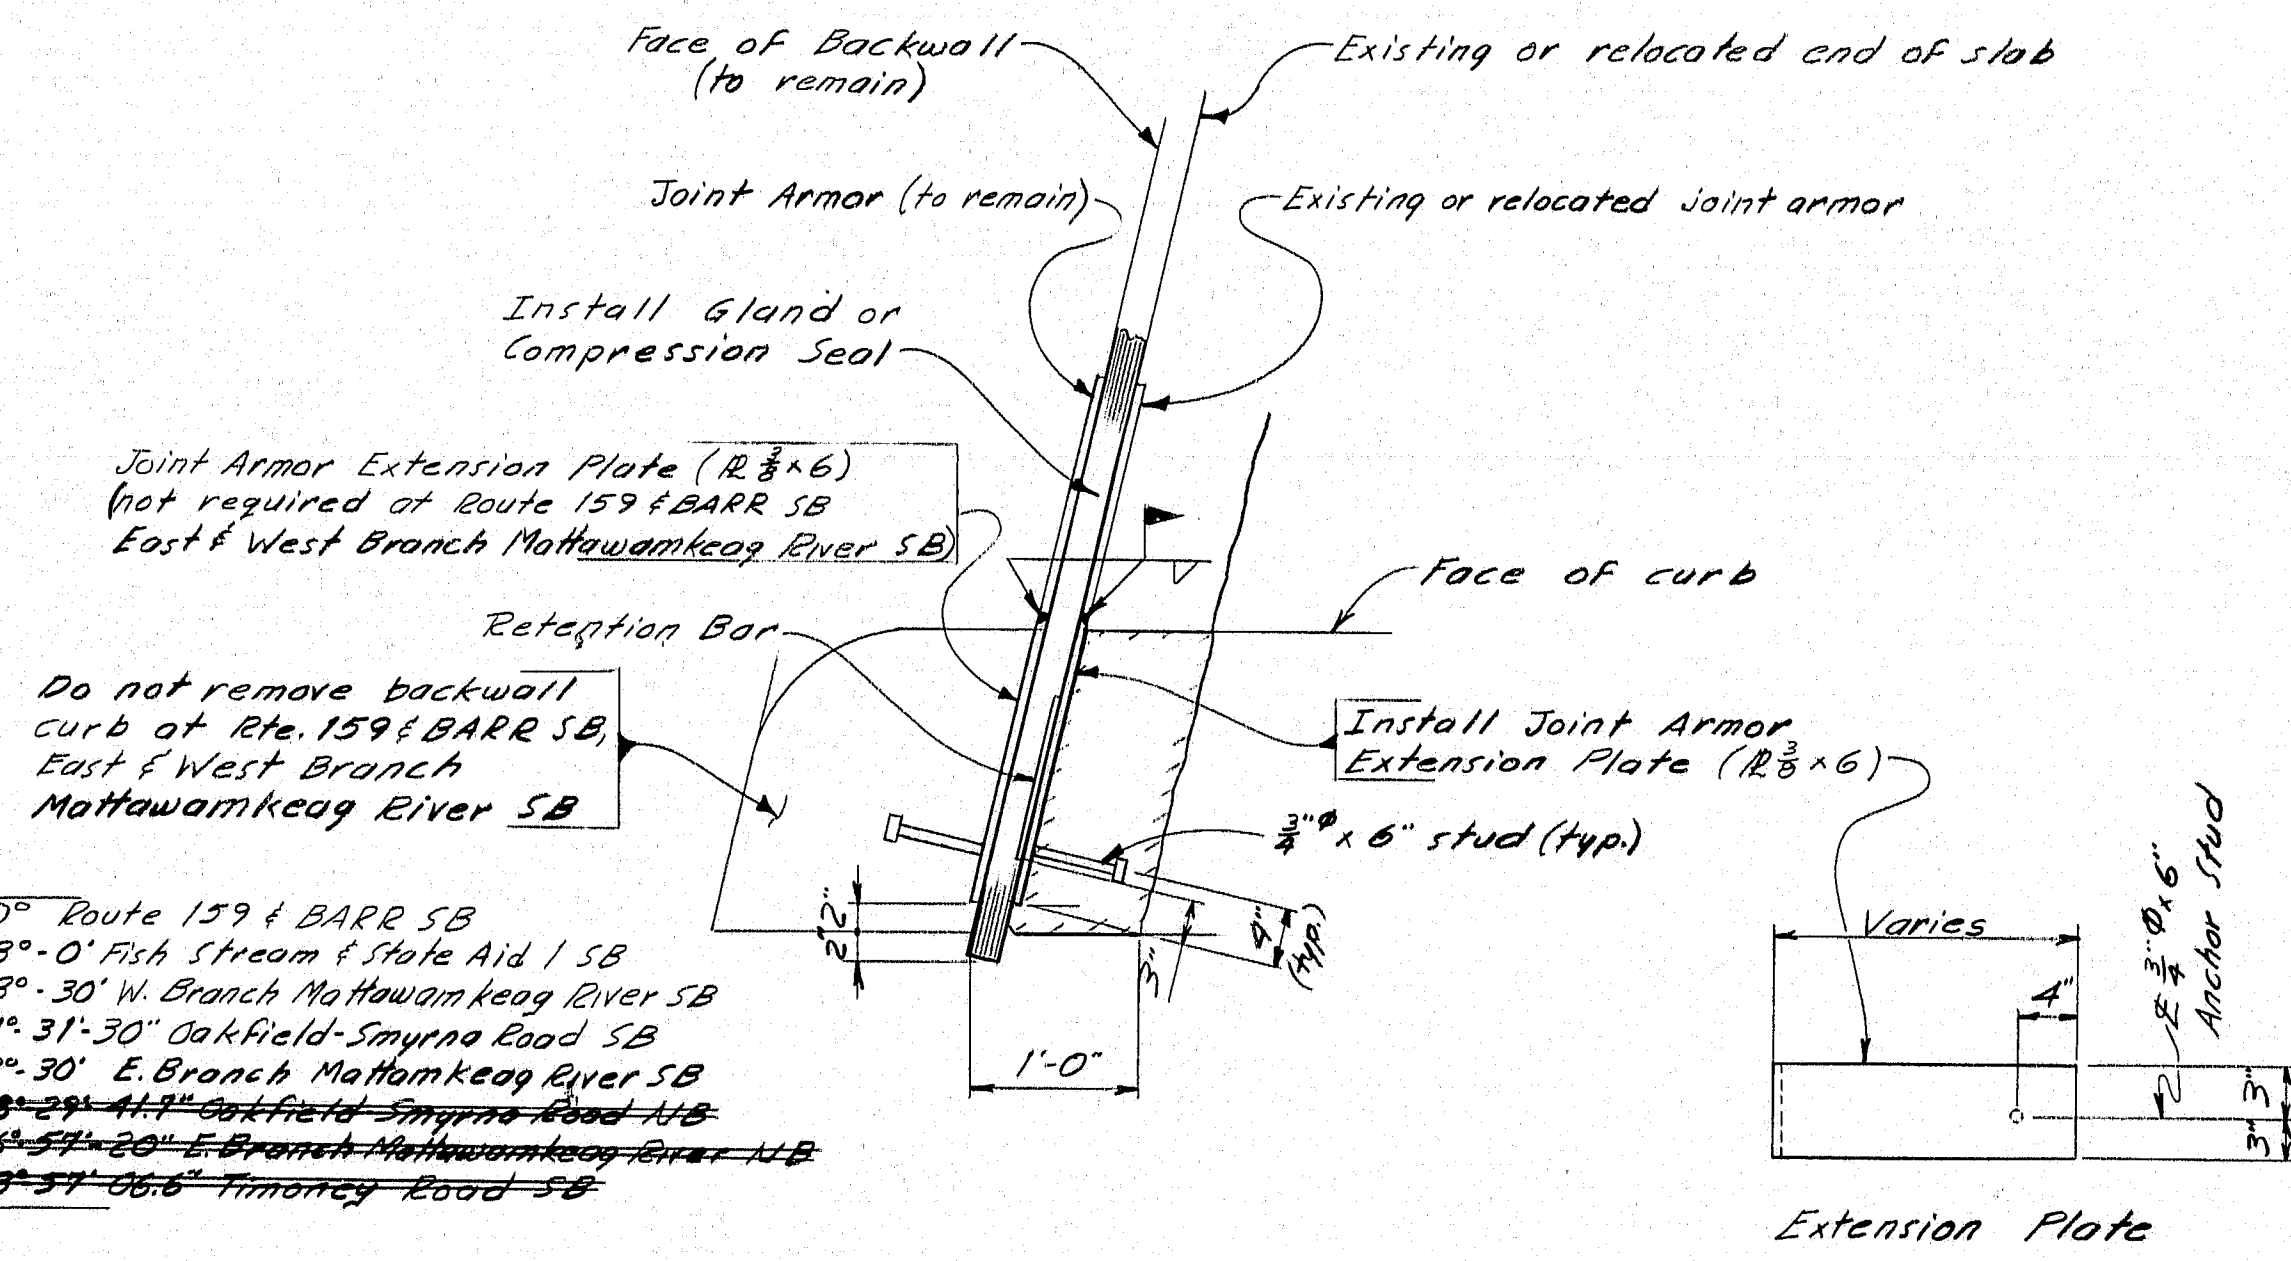 Face of Backwall
(to remain)
Existing or relocated end of slab
Joint Armor (to remain)
Existing or relocated joint armor
Install Gland or
Compression Seal
Joint Armor Extension Plate (PL 3/8 x 6)
(not required at Route 159 & BARR SB
East & West Branch Mattawamkeag River SB)
Face of curb
Retention Bar
Do not remove backwall
curb at Rte. 159 & BARR SB,
East & West Branch
Mattawamkeag River SB
Install Joint Armor
Extension Plate (PL 3/8 x 6)
3/4"ø x 6" stud (typ.)
2"
2"
3"
4"
(typ.)
1'-0"
0° Route 159 & BARR SB
8°-0' Fish Stream & State Aid 1 SB
8°-30' W. Branch Mattawamkeag River SB
°-31'-30" Oakfield-Smyrna Road SB
°-30' E. Branch Mattamkeag River SB
8°-29'-41.7" Oakfield-Smyrna Road NB
°-57'-20" E. Branch Mattawamkeag River NB
8°-57' 06.6" Timoney Road SB
Varies
4"
℄ 3/4"ø x 6"
Anchor Stud
3"
3"
Extension Plate